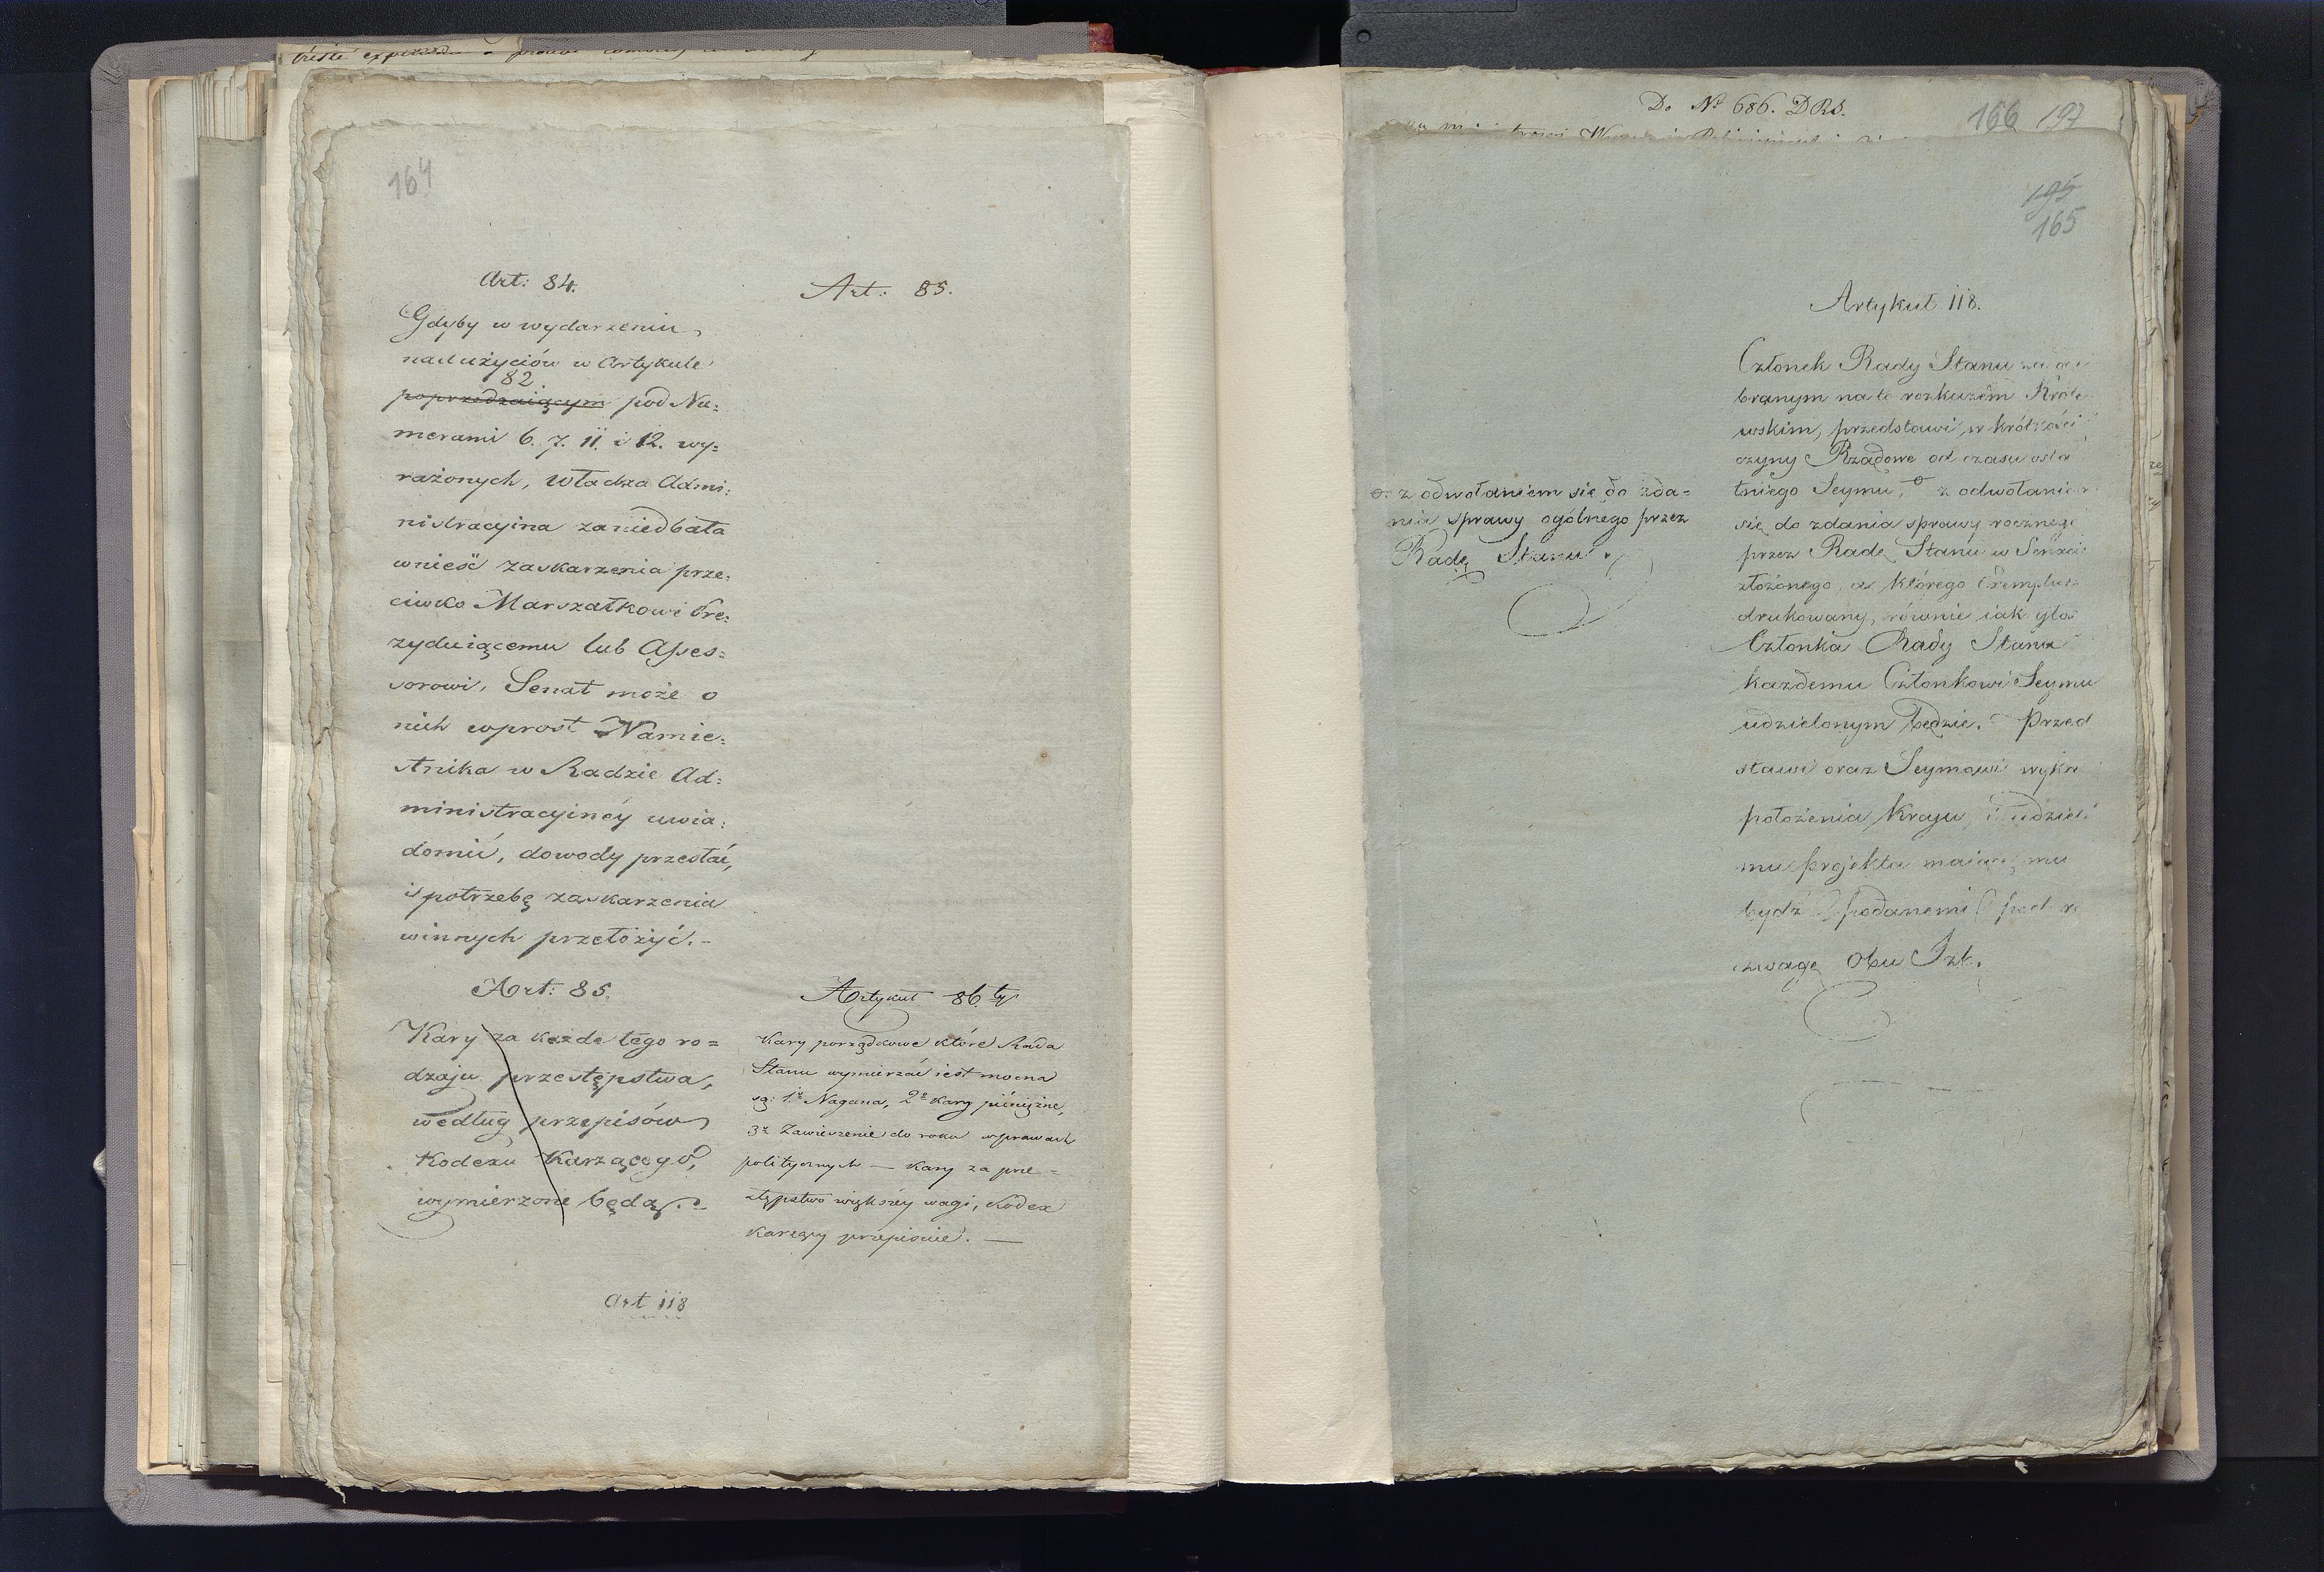 164
Art: 84.
Gdyby w wydarzeniu
nadużyciów w Artykule
82
poprzedzaiącym pod Nu=
merami 6. 7. 11. i 12. wy=
rażonych, Władza Admi:
nistracyina zaniedbała
wnieść zaskarzenia prze:
ciwko Marszałkowi Pre:
zyduiącemu lub Asses=
sorowi, Senat może o
nich wprost Namie=
stnika w Radzie Ad=
ministracyinéy uwia:
domić, dowody przesłać,
i potrzebę zaskarzenia
winnych przełożyć. -
Art: 85.
Kary za każde tego ro=
dzaju przestępstwa,
według przepisów
Kodexu Karzącego,
wymierzone będą. -
Art: 85.
Artykuł 86.ty
Kary porządkowe które Rada
Stanu wymierzać iest mocna
są: 1º Nagana, 2º kary pieniężne,
3º Zawieszenie do roku w prawach
politycznych — kary za prze=
stępstwo większéy wagi, Kodex
karzący przepisuie. —
Art 118
Do Nº 686. DRS.
166 197
195
165
Artykuł 118.
Członek Rady Stanu za
branym na to rozkazem Króle
wskim, przedstawi w krótkości
czyny Rządowe od czasu osta
tniego Seymu, z odwołanie
się do zdania sprawy rocznego
przez Radę Stanu w Senacie
złożonego, a którego
drukowany, równie iak głos
Członka Rady Stanu
każdemu Członkowi Seymu
udzielonym będzie. Przed
stawi oraz Seymowi
położenia Kraju, i udzieli
mu projekta maiące mu
bydź podanemi pod
uwagę obu Izb.
z odwołaniem się do zda=
nia sprawy ogólnego przez
Radę Stanu.